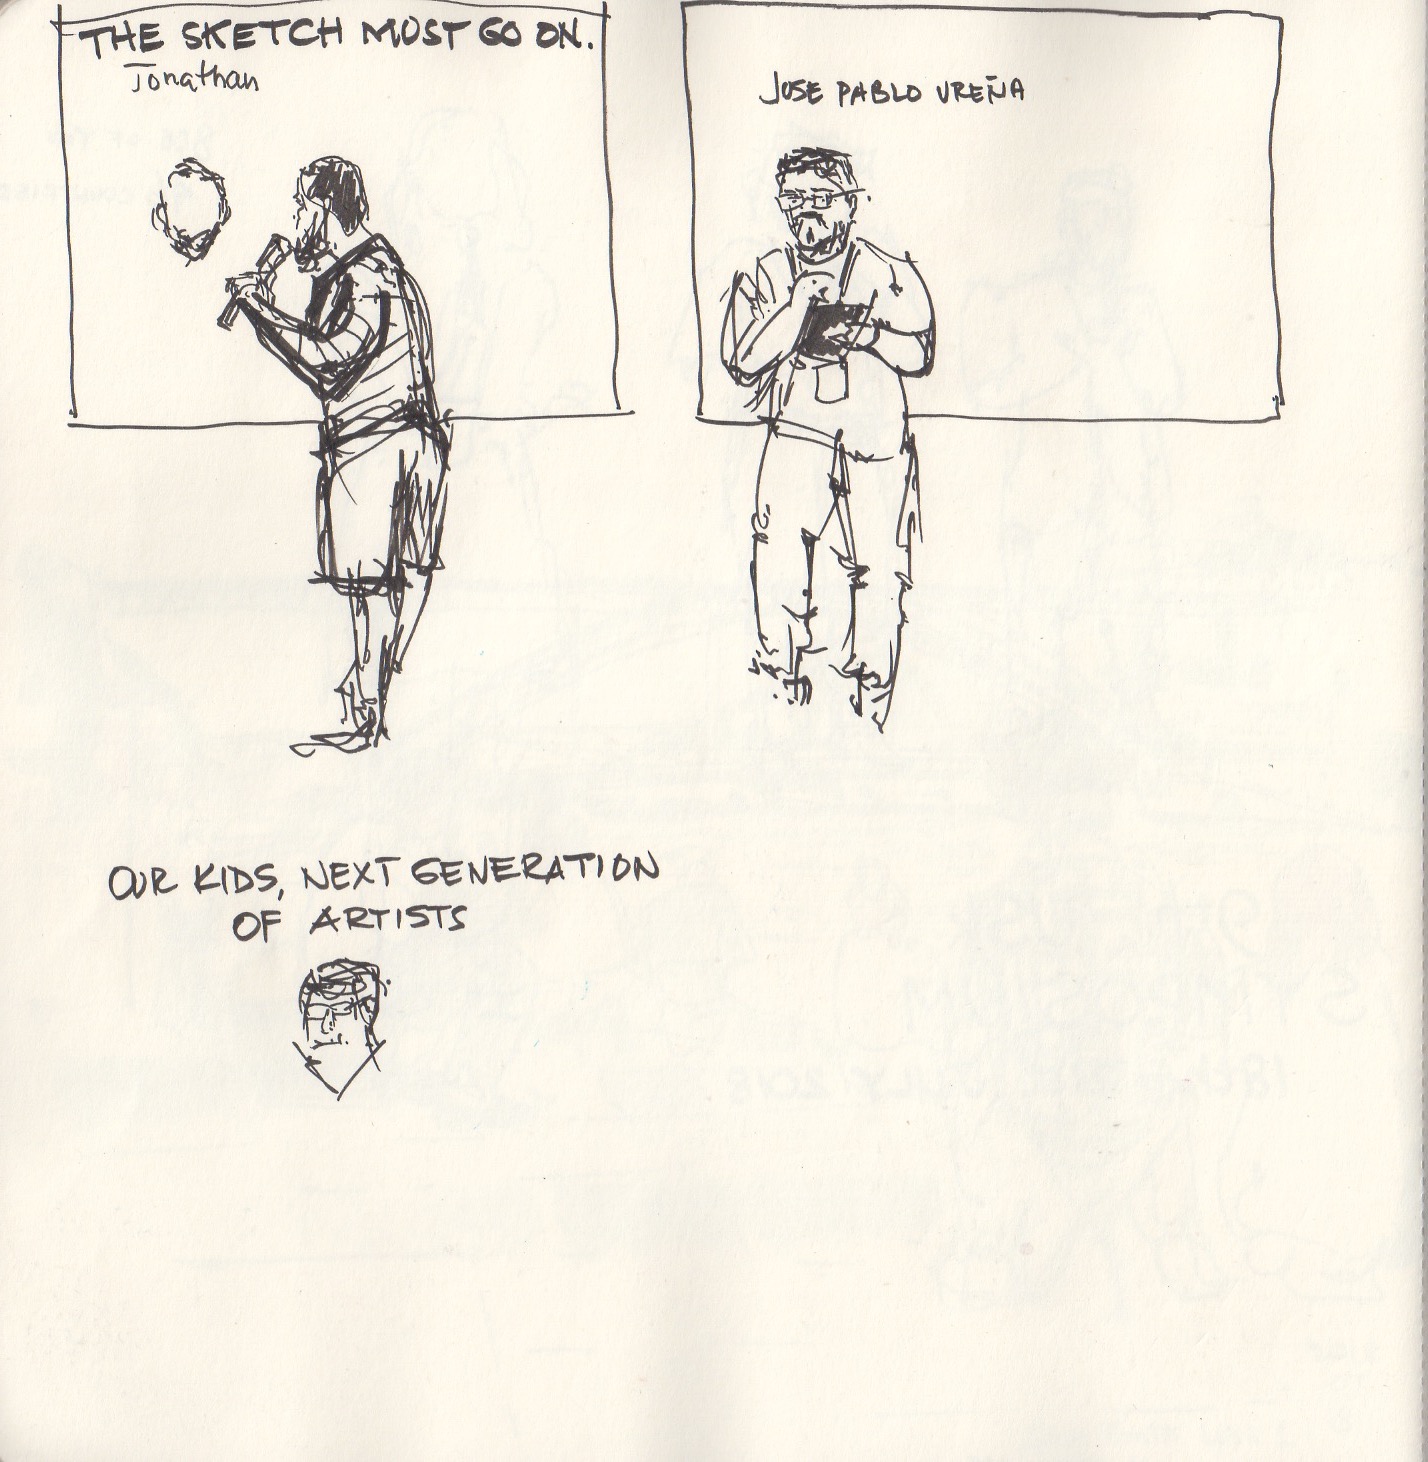 THE SKETCH MUST GO ON.
Jonathan
JOSE PABLO UREÑA
OUR KIDS, NEXT GENERATION
OF ARTISTS